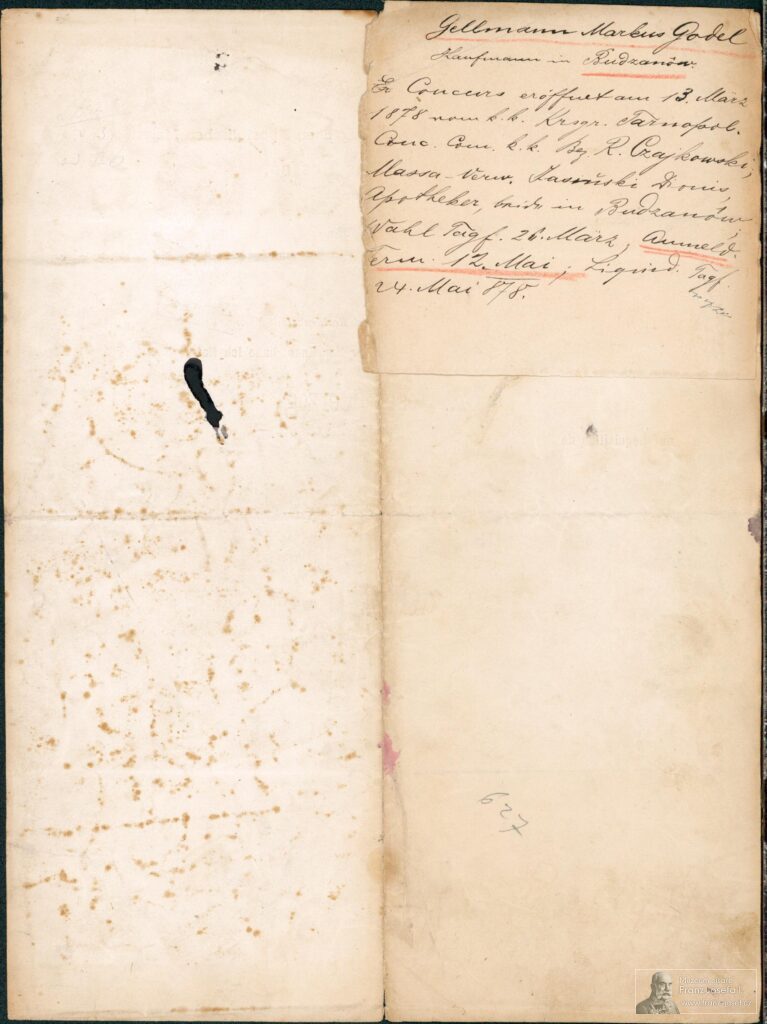 Gellmann Markus Godel
Kaufmann in Budzanów.
Er Concurs eröffnet am 13. März
1878 vom k. k. Krsgr. Tarnopol.
Conc. Com. k. k. Bez R. Czajkowski,
Massa-Verw. Jasiński Dionis,
Apotheker, beide in Budzanów,
Wahl Tagf. 26. März, Anmeld.
Term. 12. Mai; Liquid. Tagf.
24. Mai 878.
627
Franz Josefa I.